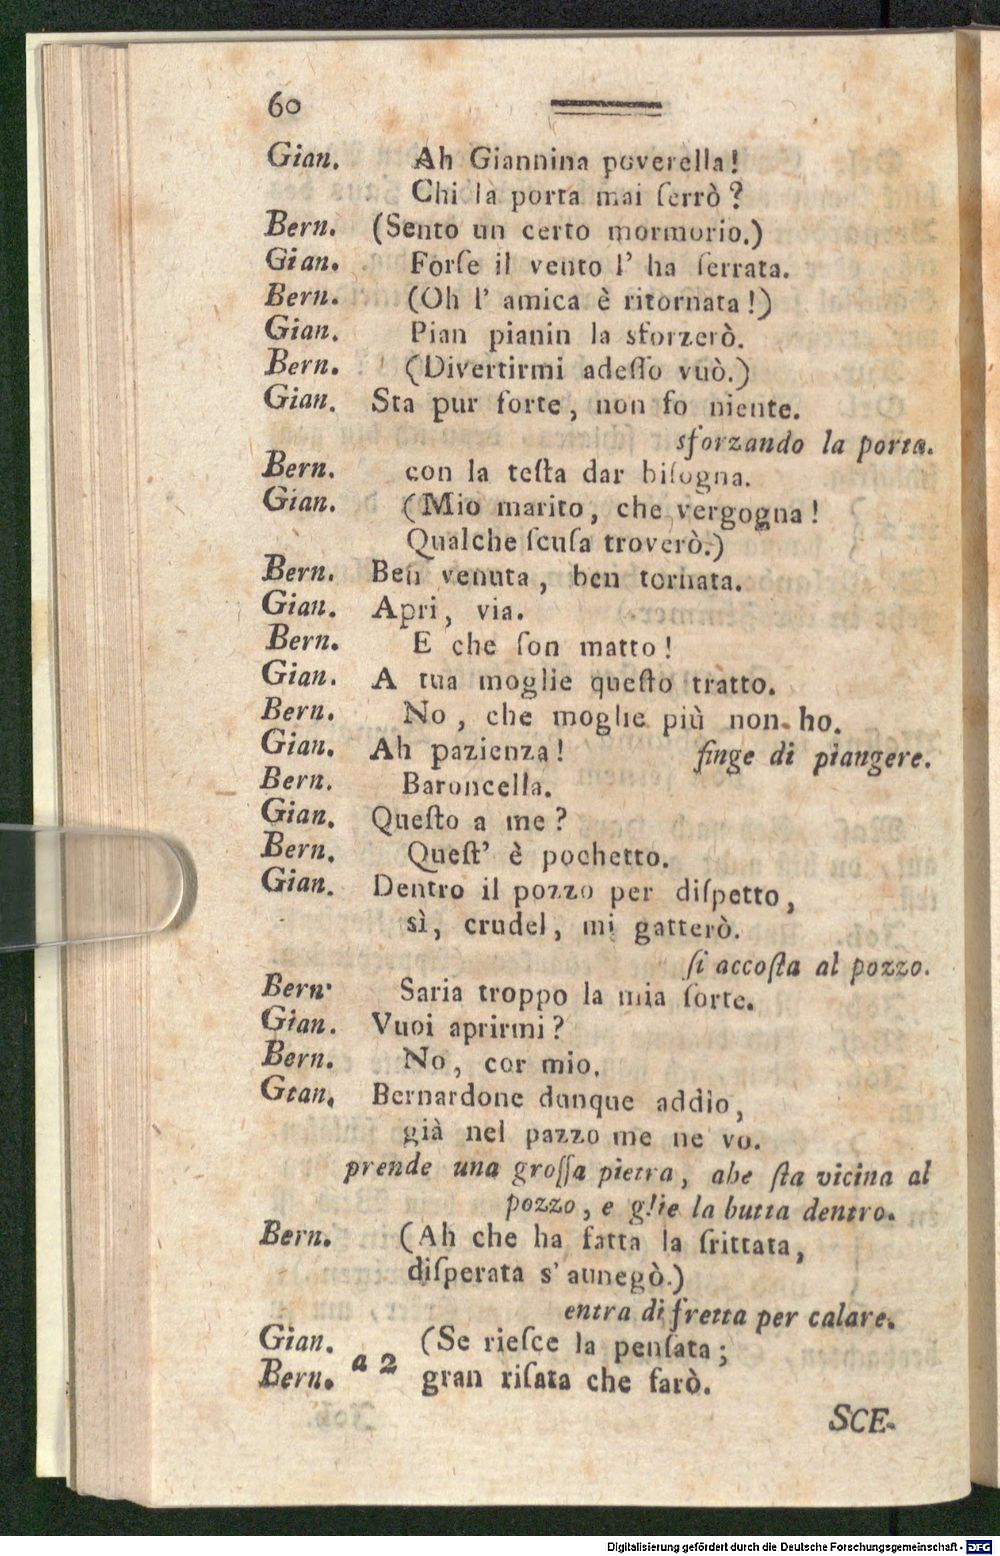 60
Gian. Ah Giannina poverella!
Chi la porta mai ſerrò?
Bern. (Sento un certo mormorio.)
Gian. Forſe il vento l' ha ſerrata.
Bern. (Oh l' amica è ritornata!)
Gian. Pian pianin la sforzerò.
Bern. (Divertirmi adeſſo vuò.)
Gian. Sta pur forte, non fo niente.
sforzando la porta.
Bern. con la teſta dar biſogna.
Gian. (Mio marito, che vergogna!
Qualche ſcuſa troverò.)
Bern. Ben venuta, ben tornata.
Gian. Apri, via.
Bern. E che ſon matto!
Gian. A tua moglie queſto tratto.
Bern. No, che moglie più non ho.
Gian. Ah pazienza! finge di piangere.
Bern. Baroncella.
Gian. Queſto a me?
Bern. Queſt' è pochetto.
Gian. Dentro il pozzo per diſpetto,
sì, crudel, mi gatterò.
ſi accoſta al pozzo.
Bern. Saria troppo la mia ſorte.
Gian. Vuoi aprirmi?
Bern. No, cor mio.
Gtan. Bernardone dunque addio,
già nel pazzo me ne vo.
prende una groſſa pietra, ahe ſta vicina al
pozzo, e glie la butta dentro.
Bern. (Ah che ha fatta la frittata,
diſperata s' annegò.)
entra di fretta per calare.
Gian. (Se rieſce la penſata;
Bern. a 2 gran riſata che farò.
SCE-
Digitalisierung gefördert durch die Deutsche Forschungsgemeinschaft - DFG